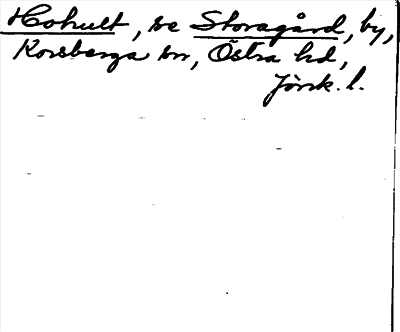 Hohult, se Storagård, by,
Korsberga sn, Östra hd,
Jönk. l.